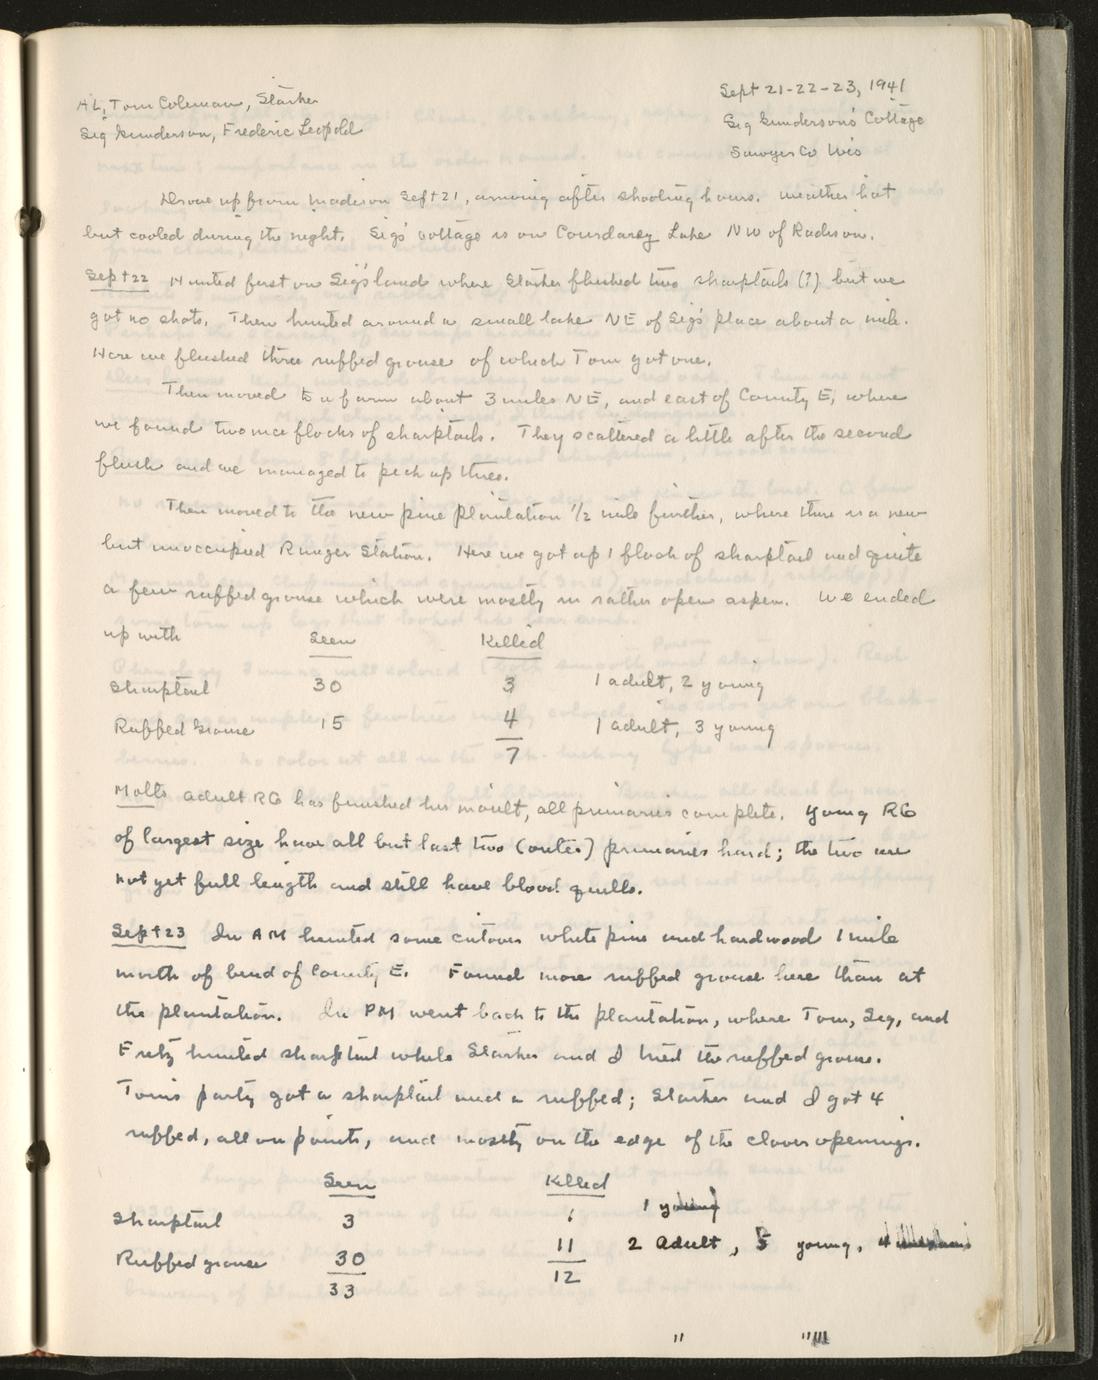 AL, Tom Coleman, Starker
Sig Gunderson, Frederic Leopold
Sept 21-22-23, 1941
Sig Gunderson's Cottage
Sawyer Co Wis
Drove up from Madison Sept 21, arriving after shooting hours. Weather hot
but cooled during the night. Sigs' cottage is on Lake NW of Radison.
Sept 22 Hunted first on Sig's land where Starker flushed two sharptails (?) but we
got no shots. Then hunted around a small lake NE of Sig's place about a mile.
Here we flushed three ruffed grouse of which Tom got one.
Then moved to a farm about 3 miles NE, and east of County E, where
we found two nice flocks of sharptails. They scattered a little after the second
flush and we managed to pick up three.
Then moved to the new pine plantation 1/2 mile further, where there is a new
but unoccupied Ranger Station. Here we got up 1 flock of sharptail and quite
a few ruffed grouse which were mostly in rather open aspen. We ended
up with Seen Killed
Sharptail 30 3 1 adult, 2 young
Ruffed Grouse 15 4 1 adult, 3 young
7
Molts Adult RG has finished his moult, all primaries complete. Young RG
of largest size have all but last two (outer) primaries hard; the two are
not yet full length and still have blood quills.
Sept 23 In AM hunted some cutover white pine and hardwood 1 mile
north of bend of County E. Found more ruffed grouse here than at
the plantation. In PM went back to the plantation, where Tom, Sig, and
Fritz hunted sharptail while Starker and I tried the ruffed grouse.
Tom's party got a sharptail and a ruffed; Starker and I got 4
ruffed, all on points, and mostly on the edge of the clover openings.
Seen Killed
Sharptail 3 1 1 young
Ruffed grouse 30 11 2 adult, 5 young, 4
33 12